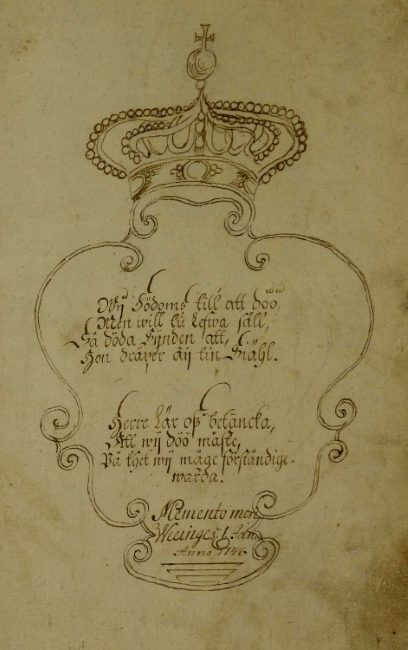 Wij Födoms till att döö,
Men will tu Lefwa säll,
Så döda Synden att,
Hon dräper aij tin Siähl.
Herre Lär oß betäncka,
Att wij döö måste,
På thet wij måge förståndige
warda.
Memento mori
Anno 1746